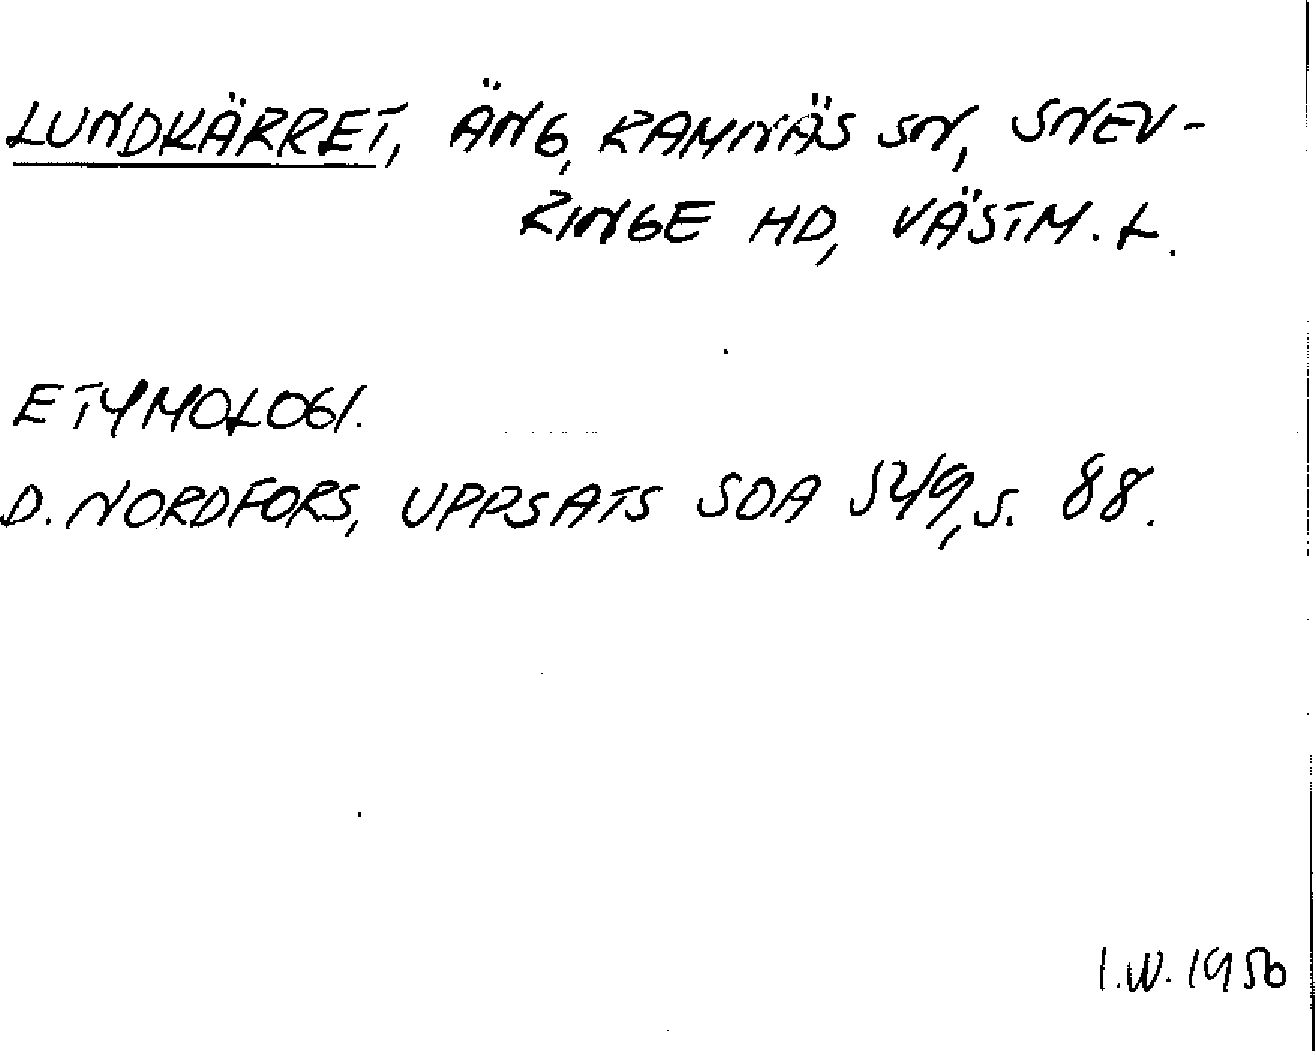 LUNDKÄRRET, ÄNG, RAMNÄS SN, SNEV-
RINGE HD, VÄSTM. L.
ETYMOLOGI.
D. NORDFORS, UPPSATS SOA 549, S. 88.
I.W. 1956